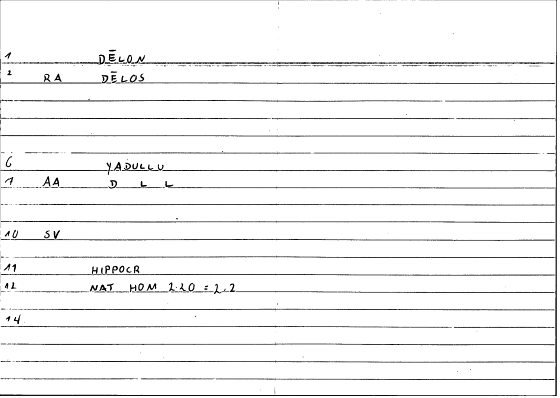 1 DĒLON
2 RA DĒLOS
6 YADULLU
7 AA D L L
10 SV
11 HIPPOCR
12 NAT HOM 2.20 = 2.2
14